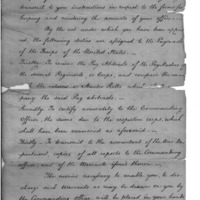 transmit to you instructions in respect to the forms for
keeping and rendering the accounts of your office.
By the act under which you have been appoint
ed, the following duties are assigned to the Paymaster
of the Troops of the United States.
Firstly. To receive the Pay Abstracts of the Paymasters
the several Regiments or Corps, and compare them
the returns or Muster Rolls which
pany the said Pay abstracts.
Secondly. To certify accurately to the Commanding
Officer, the sums due to the respective corps, which
shall have been examined as aforesaid
Thirdly. To transmit to the accountant of the War
partment, copies of all reports to the Commanding
officer, and of the Warrants thereon
The monies necessary to enable you, to dis
charge such Warrants as may be drawn on you by
the Commanding Officer will be placed in your hands